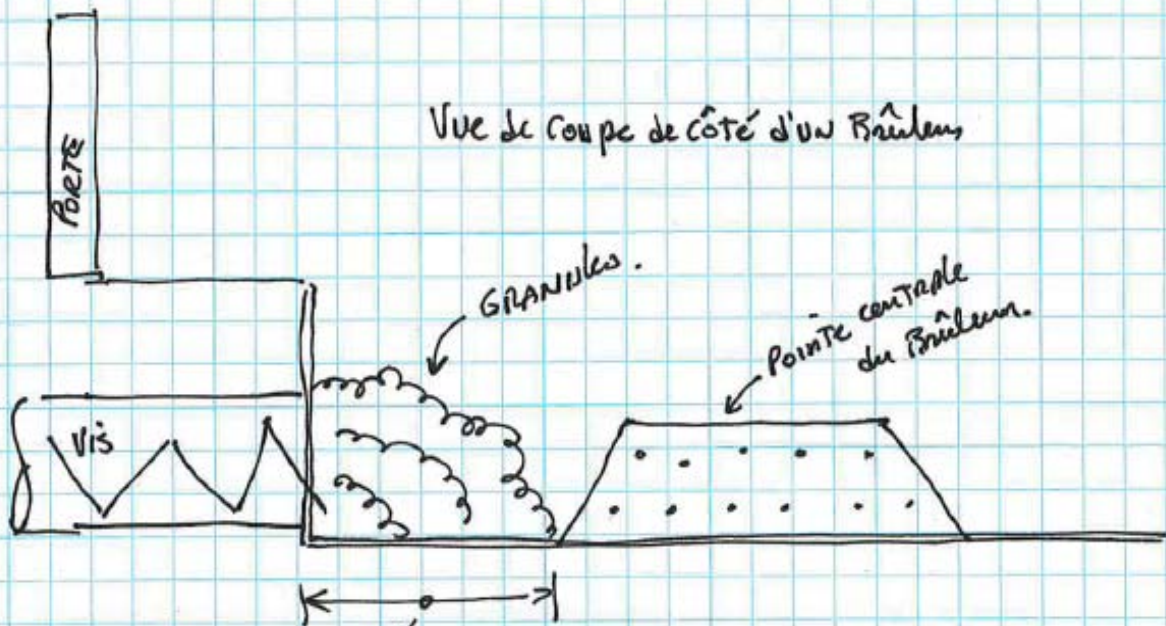 Vue de coupe de côté d'un Brûleur
PORTE
GRANULES.
Pointe centrale
du Brûleur.
Vis